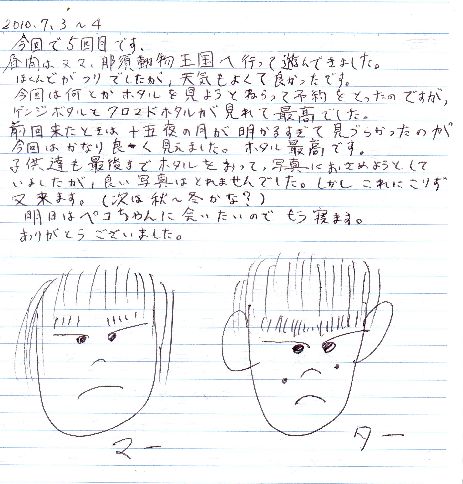 2010.7.3～4
今回で5回目です。
昼間は又々、那須動物王国へ行って遊んできました。
でしたが、天気もよくて良かったです。
今回は何とかホタルを見ようとねらって予約をとったのですが、
ゲンジボタルとクロマドホタルが見れて最高でした。
前回来たときは十五夜の月が明かるすぎて見づらかったのが
今回はかなり良く見えました。ホタル最高です。
子供達も最後までホタルをおって、写真におさめようとして
いましたが、良い写真はとれませんでした。しかしこれにこりず
又来ます。(次は秋～冬かな?)
明日はペコちゃんに会いたいのでもう寝ます。
ありがとうございました。
マー
ター